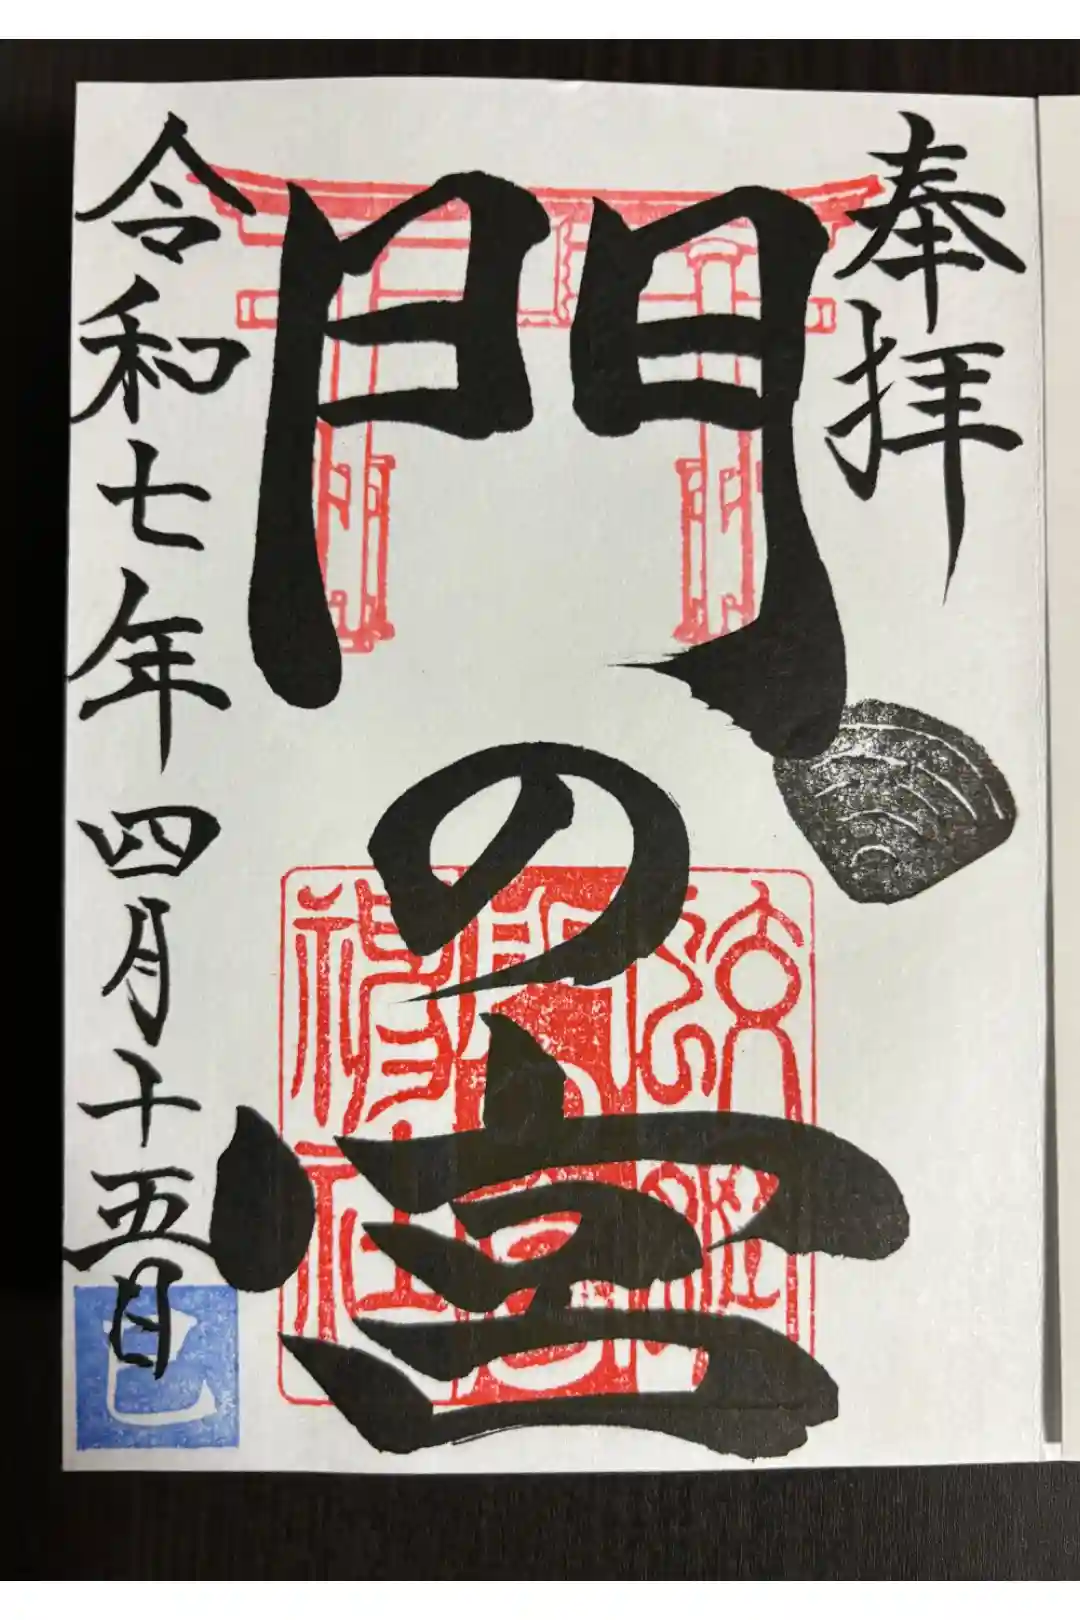 奉拝
門の宮
令和七年四月十五日
巳